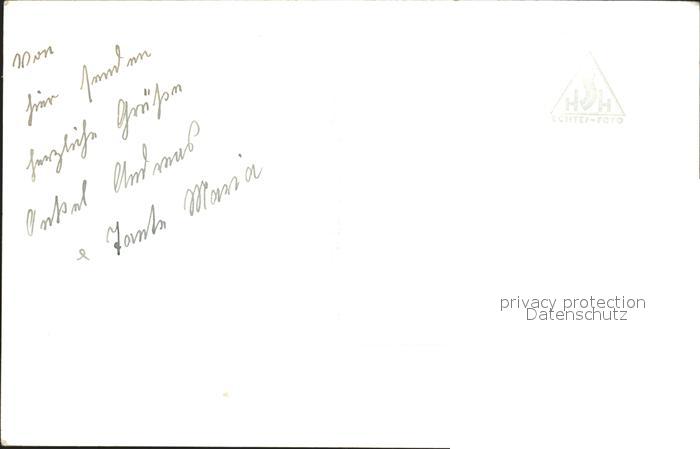 Von
hier senden
herzliche Grüße
Onkel Andreas
e Tante Maria
H H
ECHTES-FOTO
privacy protection
Datenschutz